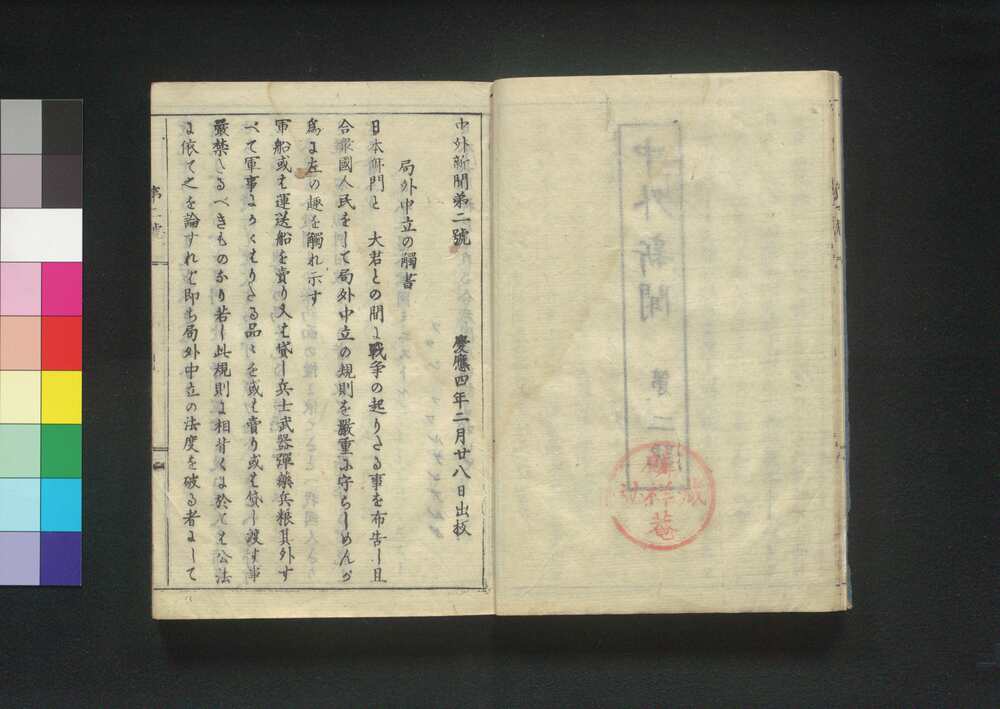 中外新聞第二號
慶應四年二月廿八日出板
局外中立の觸書
日本御門と　大君との間に戰争の起りたる事を布告し且
合衆國人民をして局外中立の規則を嚴重に守らしめんが
爲に左の趣を觸れ示す
軍船或は運送船を賣り又は貸し兵士武器彈藥兵粮其外す
べて軍事にかゝはりたる品々を或は賣り或は貸し渡す事
嚴禁たるべきものなり若し此規則に相背くに於ては公法
に依て之を論ずれば即ち局外中立の法度を破る者にして
中外新聞 第二號